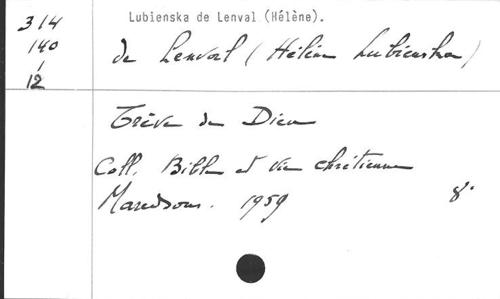 Lubienska de Lenval (Hélène).
314
140
1
12
de Lenval (Hélène Lubienska)
Trève de Dieu
Coll. Bible et vie chrétienne
Maredsous. 1959 8°